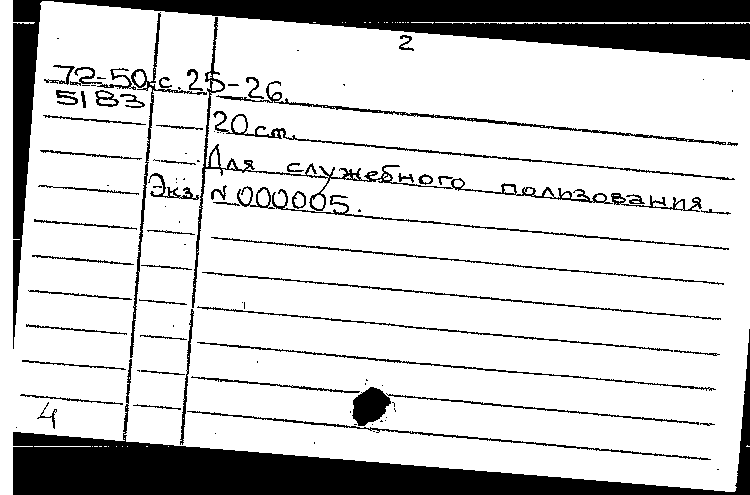 2
72-50 с. 25-26.
5183
20 см.
Для служебного пользования.
Экз. N 000005.
4